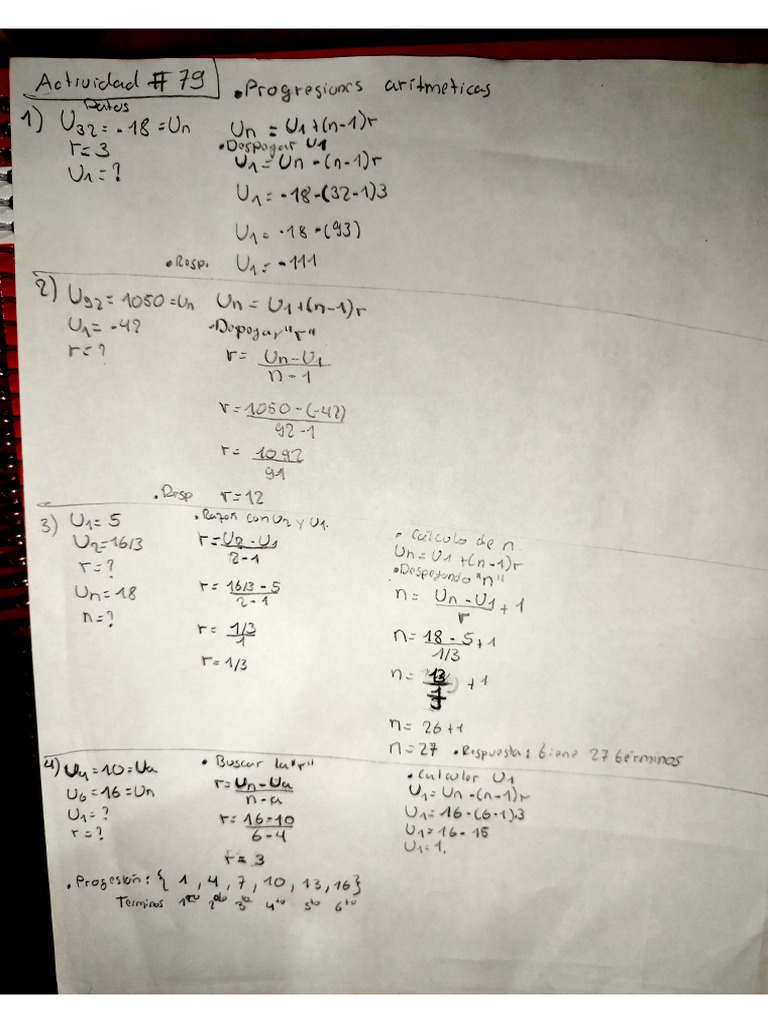 Actividad # 79
• Progresiones aritmeticas
Datos
1) U32 = -18 = Un
r = 3
U1 = ?
Un = U1+(n-1)r
• Despogar U1
U1 = Un -(n-1)r
U1 = -18-(32-1)3
U1 = -18-(93)
• Resp. U1 = -111
2) U92 = 1050 = Un
U1 = -42
r = ?
Un = U1+(n-1)r
• Depogar "r"
r = Un-U1
n-1
r = 1050-(-42)
92-1
r = 1092
91
• Resp r = 12
3) U1 = 5
U2 = 16/3
r = ?
Un = 18
n = ?
• Razon con U2 y U1.
r = U2-U1
2-1
r = 16/3-5
2-1
r = 1/3
1
r = 1/3
• Cálculo de n.
Un = U1+(n-1)r
• Despejando "n"
n = Un-U1 + 1
r
n = 18-5 + 1
1/3
n = 13 + 1
1
3
n = 26+1
n = 27 • Respuesta: tiene 27 términos
4) U4 = 10 = Ua
U6 = 16 = Un
U1 = ?
r = ?
• Buscar la "r"
r = Un-Ua
n-a
r = 16-10
6-4
r = 3
• Calcular U1
U1 = Un-(n-1)r
U1 = 16-(6-1)3
U1 = 16-15
U1 = 1.
• Progesión: { 1, 4, 7, 10, 13, 16}
Terminos 1ro 2do 3ro 4to 5to 6to